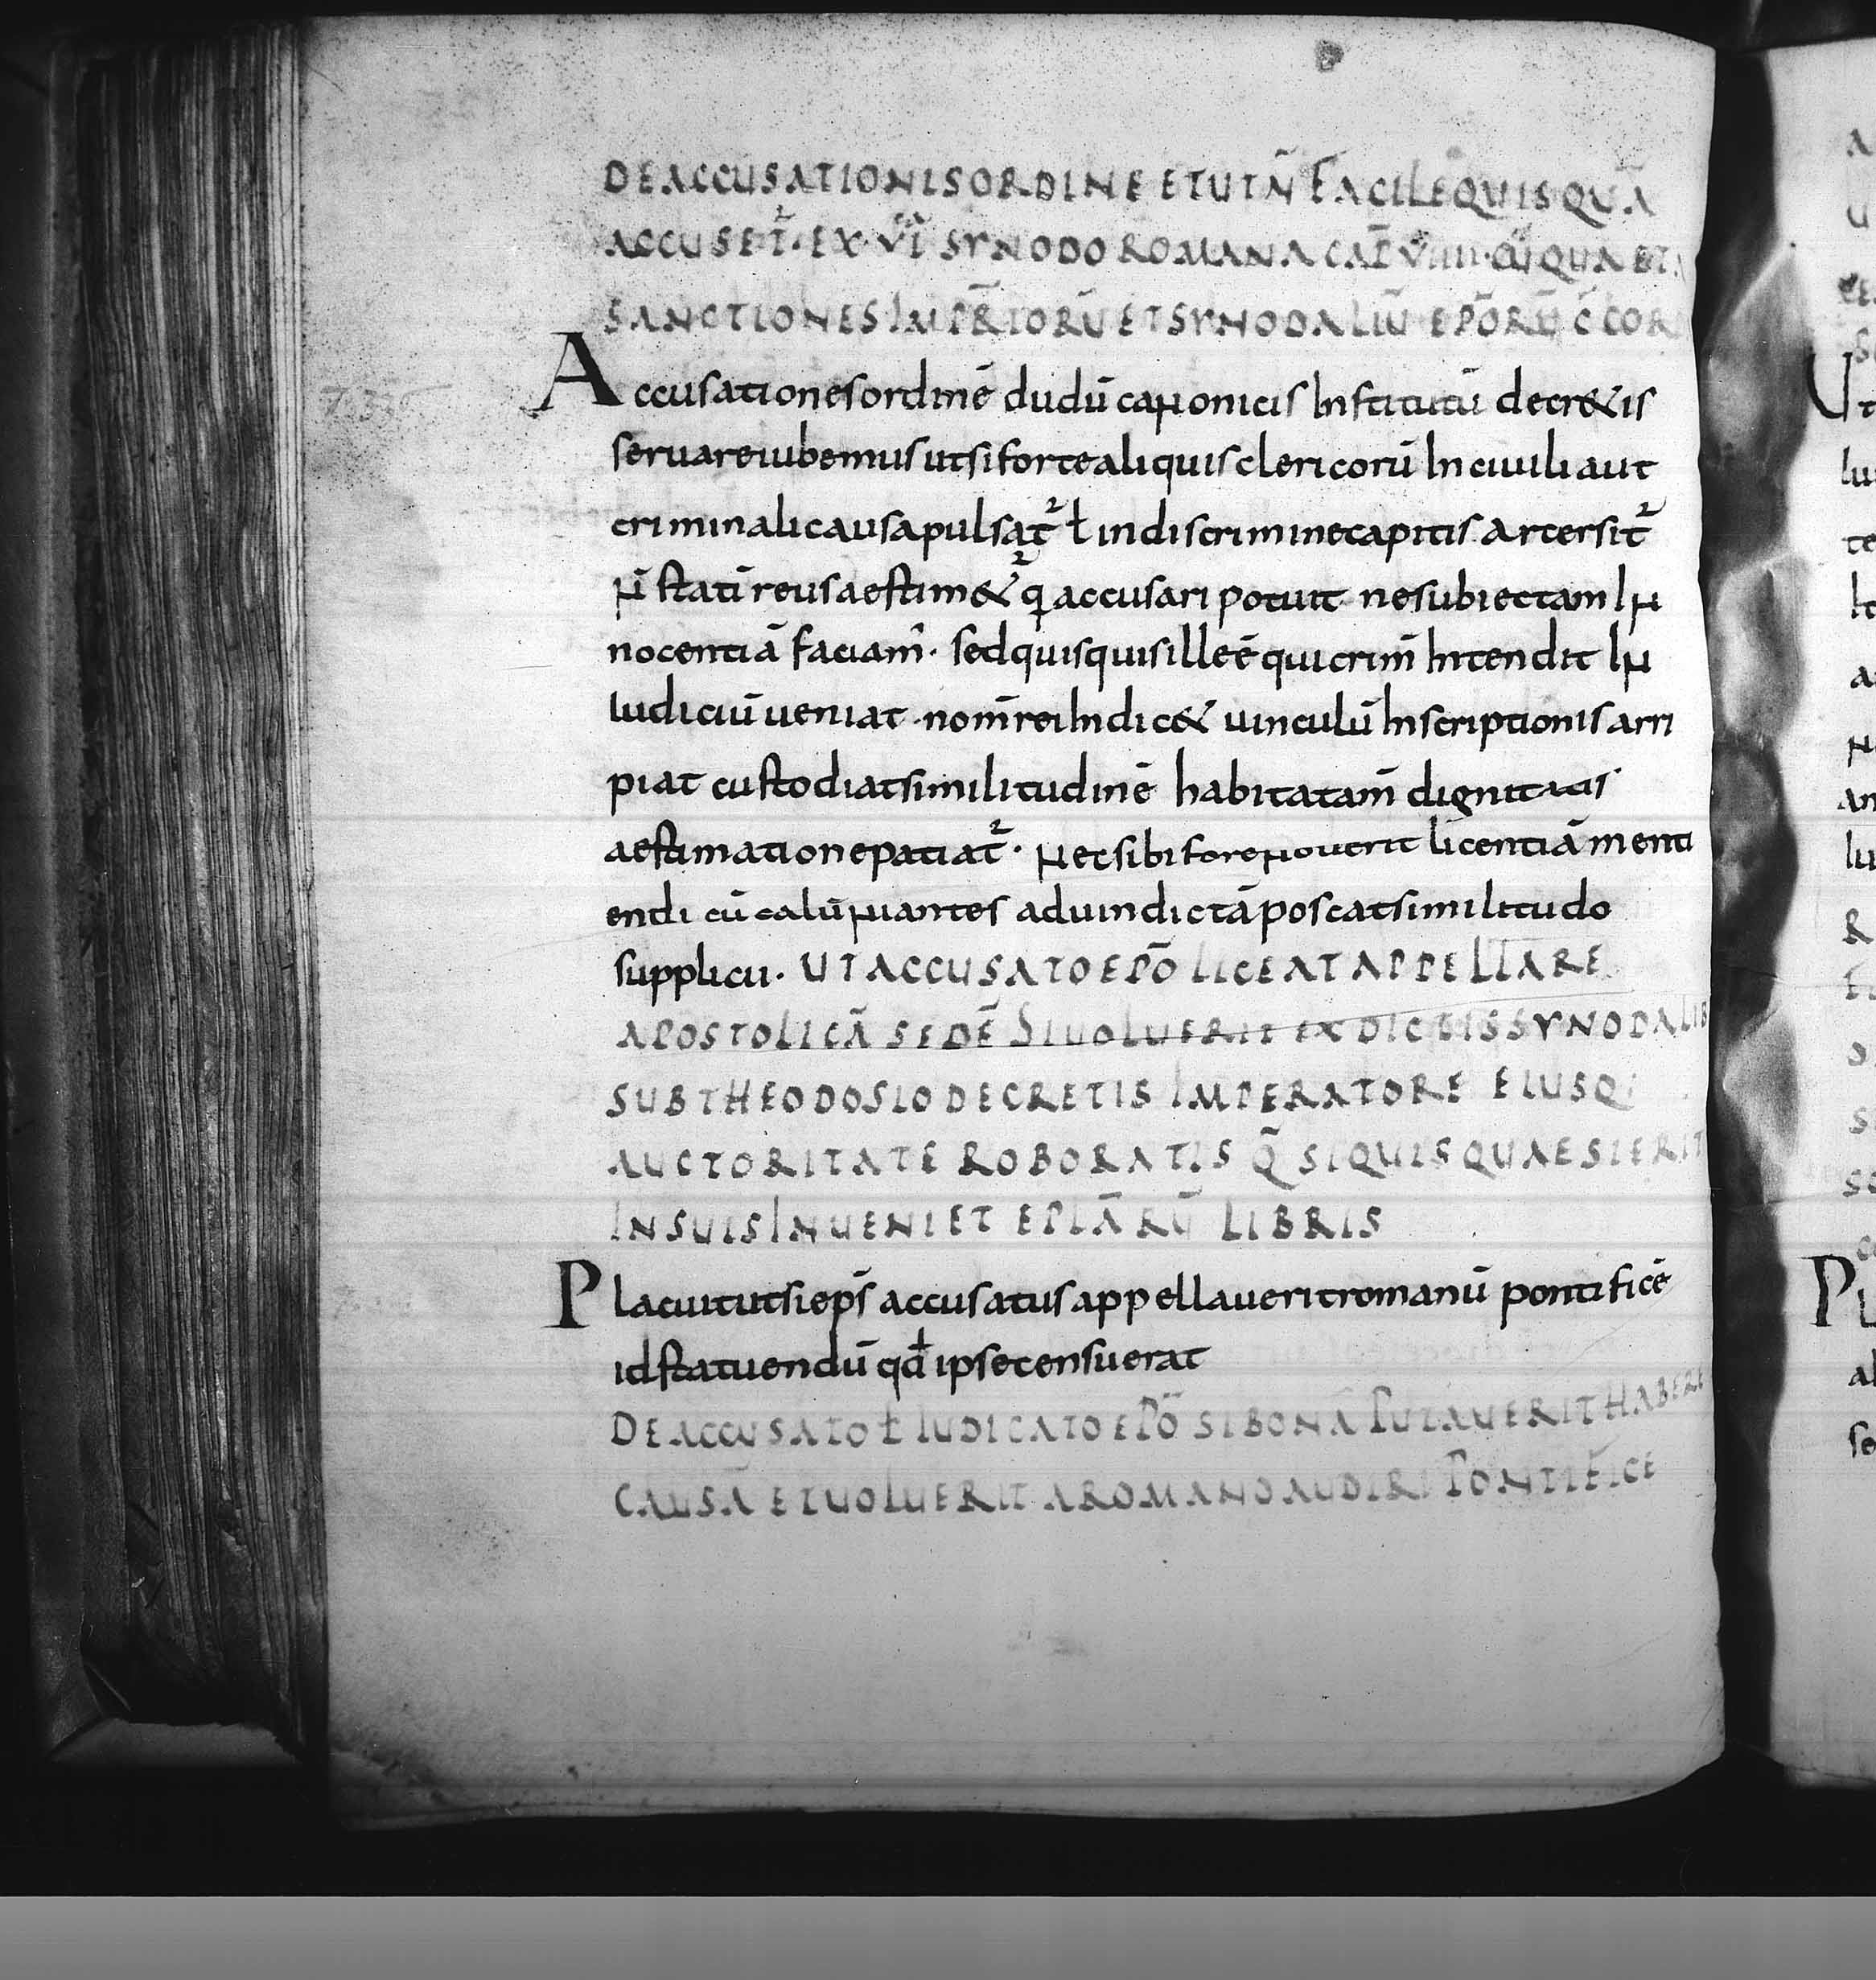 DE ACCUSATIONIS ORDINE ET UT N̄ FACILE QUISQUĀ
ACCUSET̄ʳ · EX · VI SYNODO ROMANA CAP̄ VIIII · QUA ET
SANCTIONES IMP̄RTORŪ ET SYNODALIŪ EP̄ORŪ C̄COR
Accusationes ordinē dudū canonicis Institutū decr&is
seruare iubemus ut si forte aliquis clericorū In ciuili aut
criminali causa pulsat̄ʳ ł in discrimine capitis arcersit̄ʳ
n̄ statī reus aestim&ʳ q accusari potuit ne subiectam In
nocentiā faciam̄ · sed quisquis ille ē qui crim̄ Intendit In
Iudiciū ueniat · nom̄ rei Indic& uinculū Inscriptionis arri
piat custodiat similitudinē habita tam̄ dignitatis
aestimatione patiat̄ʳ · nec sibi fore nouerit licentiā menti
endi cū calūniantes ad uindictā poscat similitudo
supplicii · UT ACCUSATO EP̄O LICEAT APPELLARE
APOSTOLICĀ SEDĒ SI UOLUERIT EX DICTIS SYNODALIB
SUB THEODOSIO DECRETIS IMPERATORE EIUSQ;
AUCTORITATE ROBORATIS Q̄ SI QUIS QUAESIERIT
IN SUIS INUENIET EPLĀRŪ LIBRIS
Placuit ut si ep̄s accusatus appellauerit romanū pontificē
id statuendū qđ ipse censuerat
DE ACCUSATO ł IUDICATO EP̄O SI BONĀ PUTAUERIT HABERE
CAUSĀ ET UOLUERIT A ROMANO AUDIRI PONTIFICE